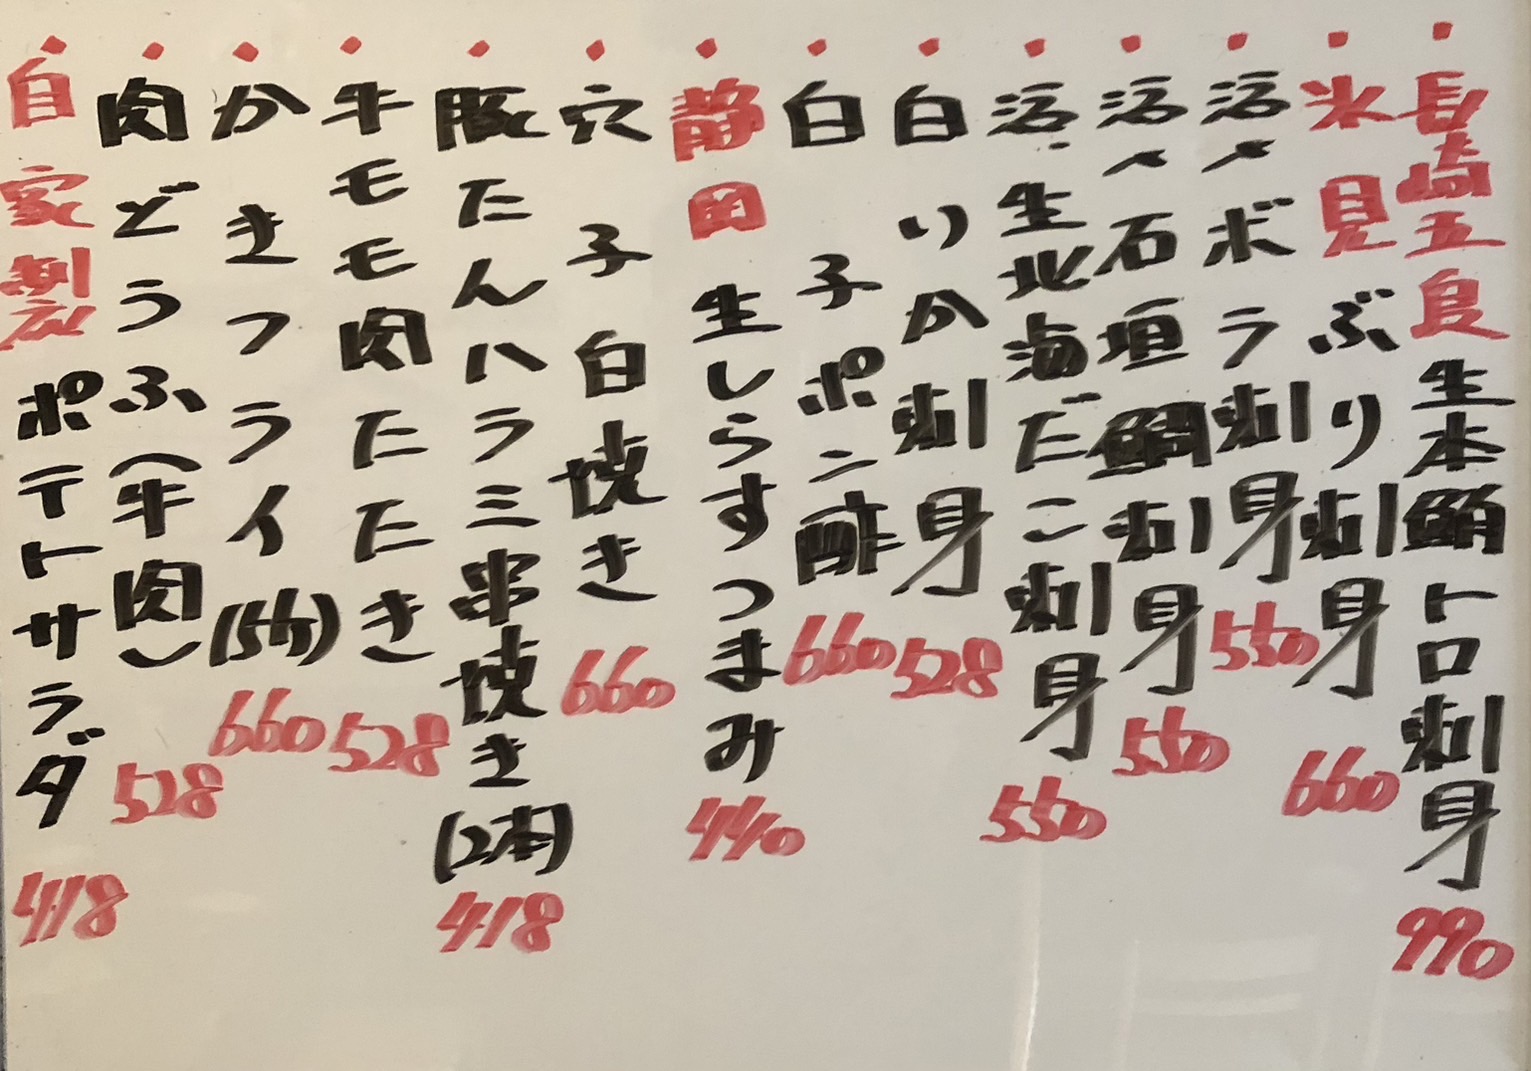 ・長崎五島生本鮪トロ刺身 990
・氷見ぶり刺身 660
・活〆ボラ刺身 550
・活〆石垣鯛刺身 550
・活・生北海だこ刺身 550
・白いか刺身 528
・白子ポン酢 660
・静岡生しらすつまみ 440
・穴子白焼き 660
・豚たんハラミ串焼き(2本) 418
・牛モモ肉たたき 528
・かきフライ(5ヶ) 660
・肉どうふ(牛肉) 528
・自家製ポテトサラダ 418